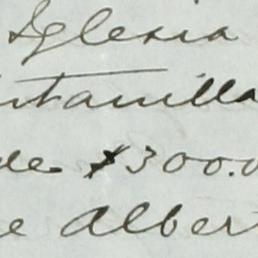 Iglesia
ntanilla
de $300.0
e Alber